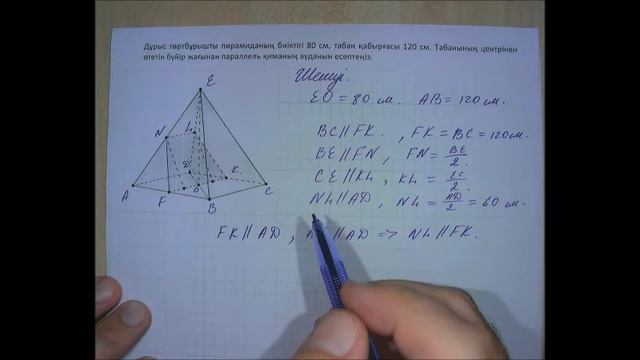 Дұрыс төртбұрышты пирамиданың биіктігі 80 см, табан қабырғасы 120 см. Табанының центрінен
өтетін бүйір жағынан параллель қиманың ауданын есептеңіз.
Шешуі.
EO = 80 см. AB = 120 см.
BC || FK. , FK = BC = 120 см.
BE || FN , FN = BE/2.
CE || KL , KL = EC/2.
NL || AD , NL = AD/2 = 60 см.
FK || AD , || AD => NL || FK.
E
N
L
D
K
A
F
O
B
C